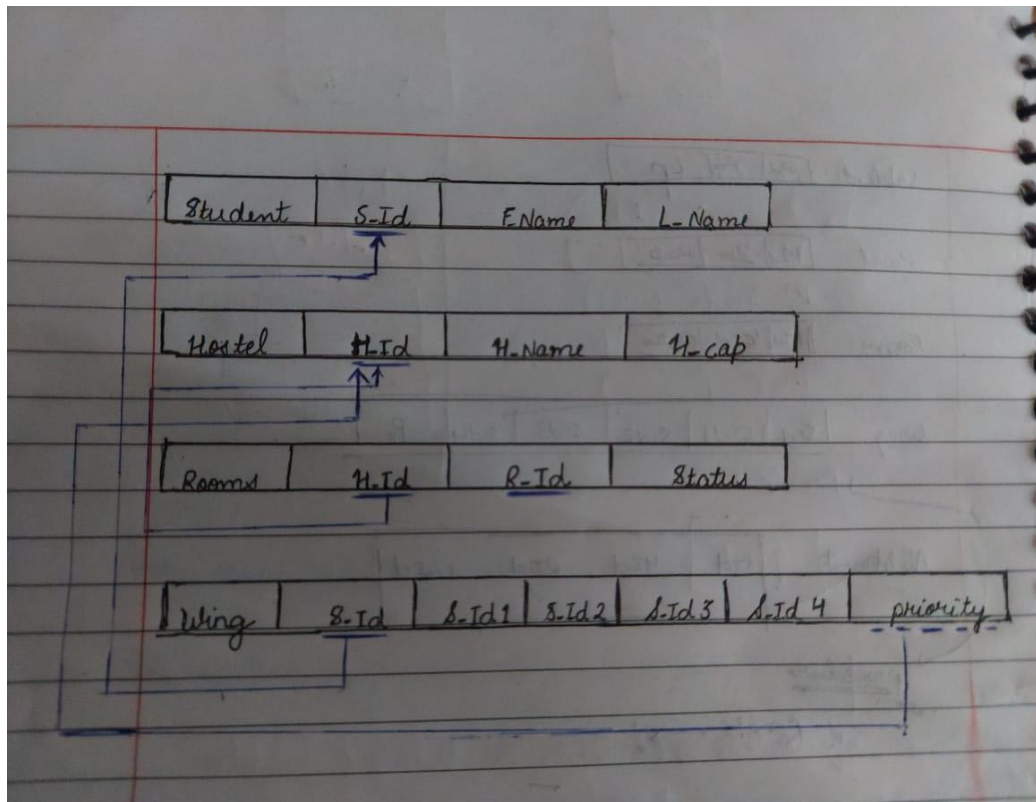 Student S_Id FName L_Name
Hostel H_Id H_Name H_cap
Rooms H_Id R_Id Status
Wing S_Id S_Id1 S_Id2 S_Id3 S_Id4 priority